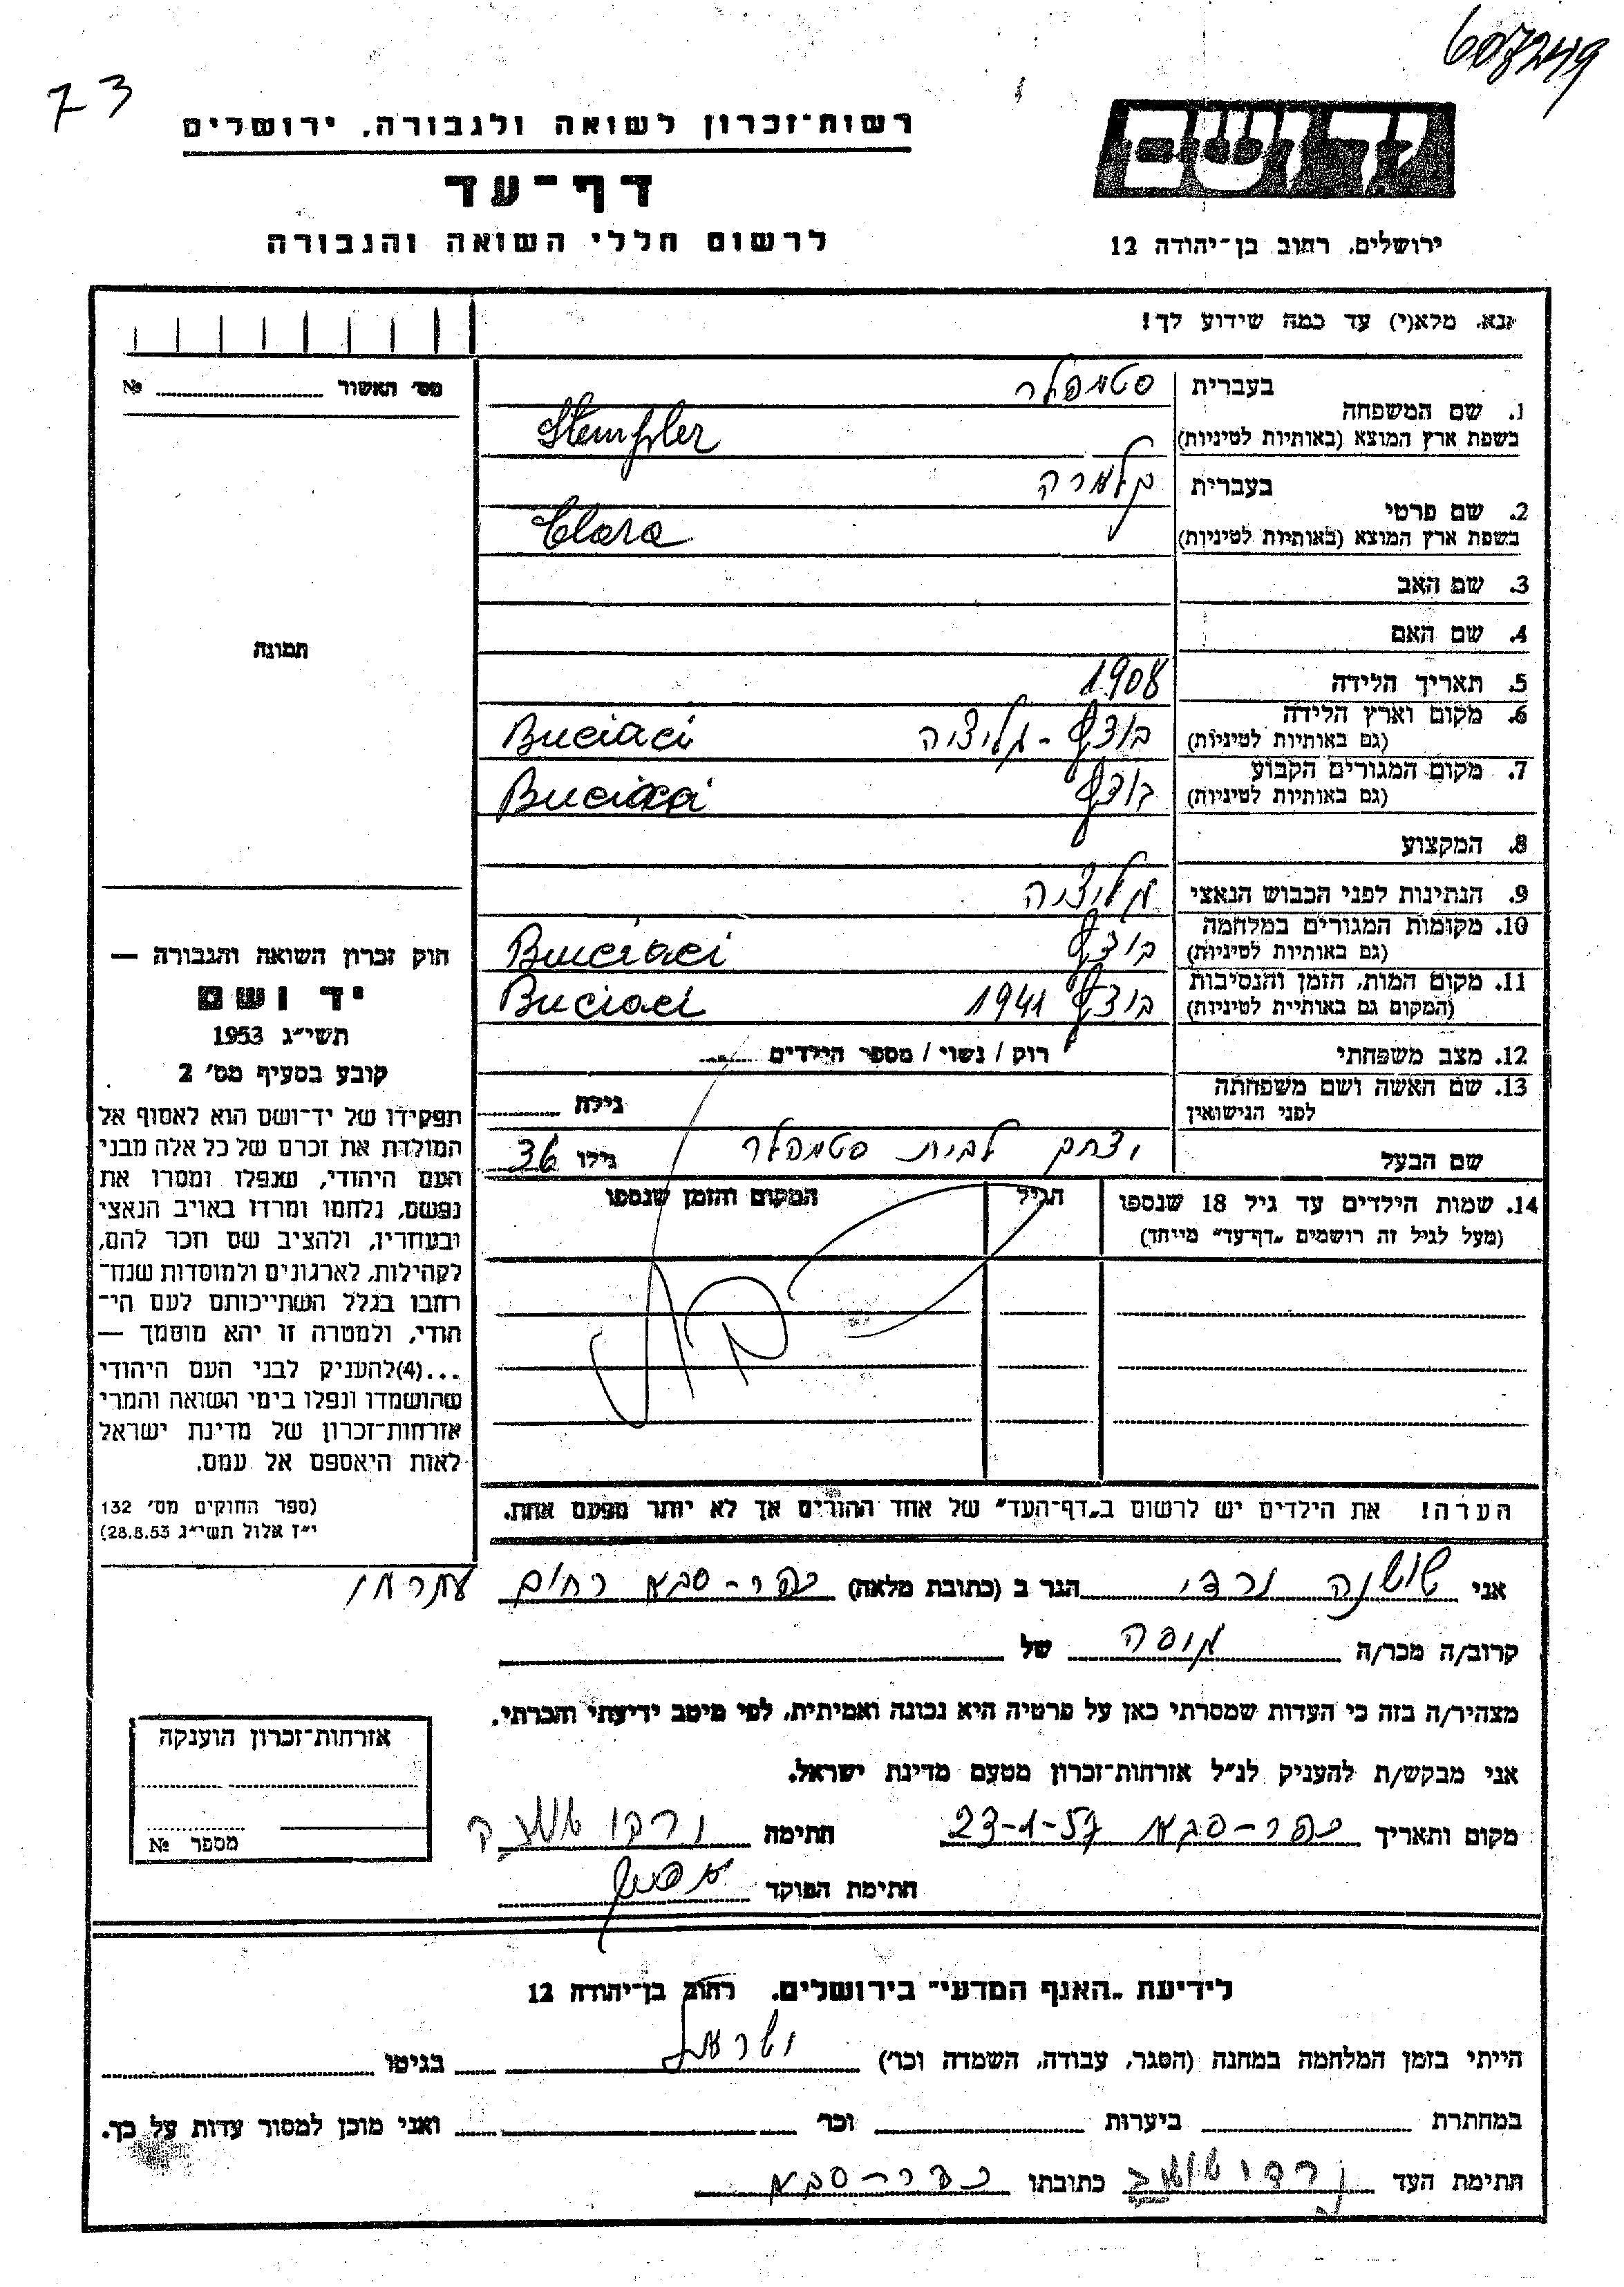 607249
73
רשות־זכרון לשואה ולגבורה, ירושלים
דף־עד
לרשום חללי השואה והגבורה
ירושלים, רחוב בן־יהודה 12
נא, מלא(י) עד כמה שידוע לך!
מס' האשור № ........
בעברית סטמפלר
1. שם המשפחה
בשפת ארץ המוצא (באותיות לטיניות) Stempler
בעברית קלרה
2. שם פרטי
בשפת ארץ המוצא (באותיות לטיניות) Clara
3. שם האב
4. שם האם
תמונה
5. תאריך הלידה 1908
6. מקום וארץ הלידה
(גם באותיות לטיניות) בוצץ - גליציה Buciaci
7. מקום המגורים הקבוע
(גם באותיות לטיניות) בוצץ Buciaci
8. המקצוע
9. הנתינות לפני הכבוש הנאצי גליציה
10. מקומות המגורים במלחמה
(גם באותיות לטיניות) בוצץ Buciaci
11. מקום המות, הזמן והנסיבות
(המקום גם באותיות לטיניות) בוצץ 1941 Buciaci
12. מצב משפחתי רוק / נשוי / מספר הילדים ........
13. שם האשה ושם משפחתה
לפני הנישואין גילה ........
שם הבעל יצחק לבית סטמפלר גילו 36
14. שמות הילדים עד גיל 18 שנספו הגיל המקום והזמן שנספו
(מעל לגיל זה רושמים „דף־עד” מיוחד)
הערה! את הילדים יש לרשום ב„דף־העד” של אחד ההורים אך לא יותר מפעם אחת.
חוק זכרון השואה והגבורה —
יד ושם
תשי״ג 1953
קובע בסעיף מס' 2
תפקידו של יד־ושם הוא לאסוף אל
המולדת את זכרם של כל אלה מבני
העם היהודי, שנפלו ומסרו את
נפשם, נלחמו ומרדו באויב הנאצי
ובעוזריו, ולהציב שם וזכר להם,
לקהילות, לארגונים ולמוסדות שנח־
רבו בגלל השתייכותם לעם הי־
הודי, ולמטרה זו יהא מוסמך —
...(4) להעניק לבני העם היהודי
שהושמדו ונפלו בימי השואה והמרי
אזרחות־זכרון של מדינת ישראל
לאות היאספם אל עמם.
(ספר החוקים מס' 132
י״ז אלול תשי״ג 28.8.53)
אני שושנה ורדי הגר ב (כתובת מלאה) כפר-סבא רחוב
קרוב/ה מכר/ה גיסה של
מצהיר/ה בזה כי העדות שמסרתי כאן על פרטיה היא נכונה ואמיתית, לפי מיטב ידיעתי והכרתי.
אני מבקש/ת להעניק לנ״ל אזרחות־זכרון מטעם מדינת ישראל.
מקום ותאריך כפר-סבא 23-1-57 חתימה ורדי שושנה
חתימת הפוקד
אזרחות־זכרון הוענקה
מספר №
לידיעת „האגף המדעי” בירושלים, רחוב בן־יהודה 12
הייתי בזמן המלחמה במחנה (הסגר, עבודה, השמדה וכו') ישראל בגיטו
במחתרת ביערות וכו' ואני מוכן למסור עדות על כך.
חתימת העד ורדי שושנה כתובתו כפר-סבא